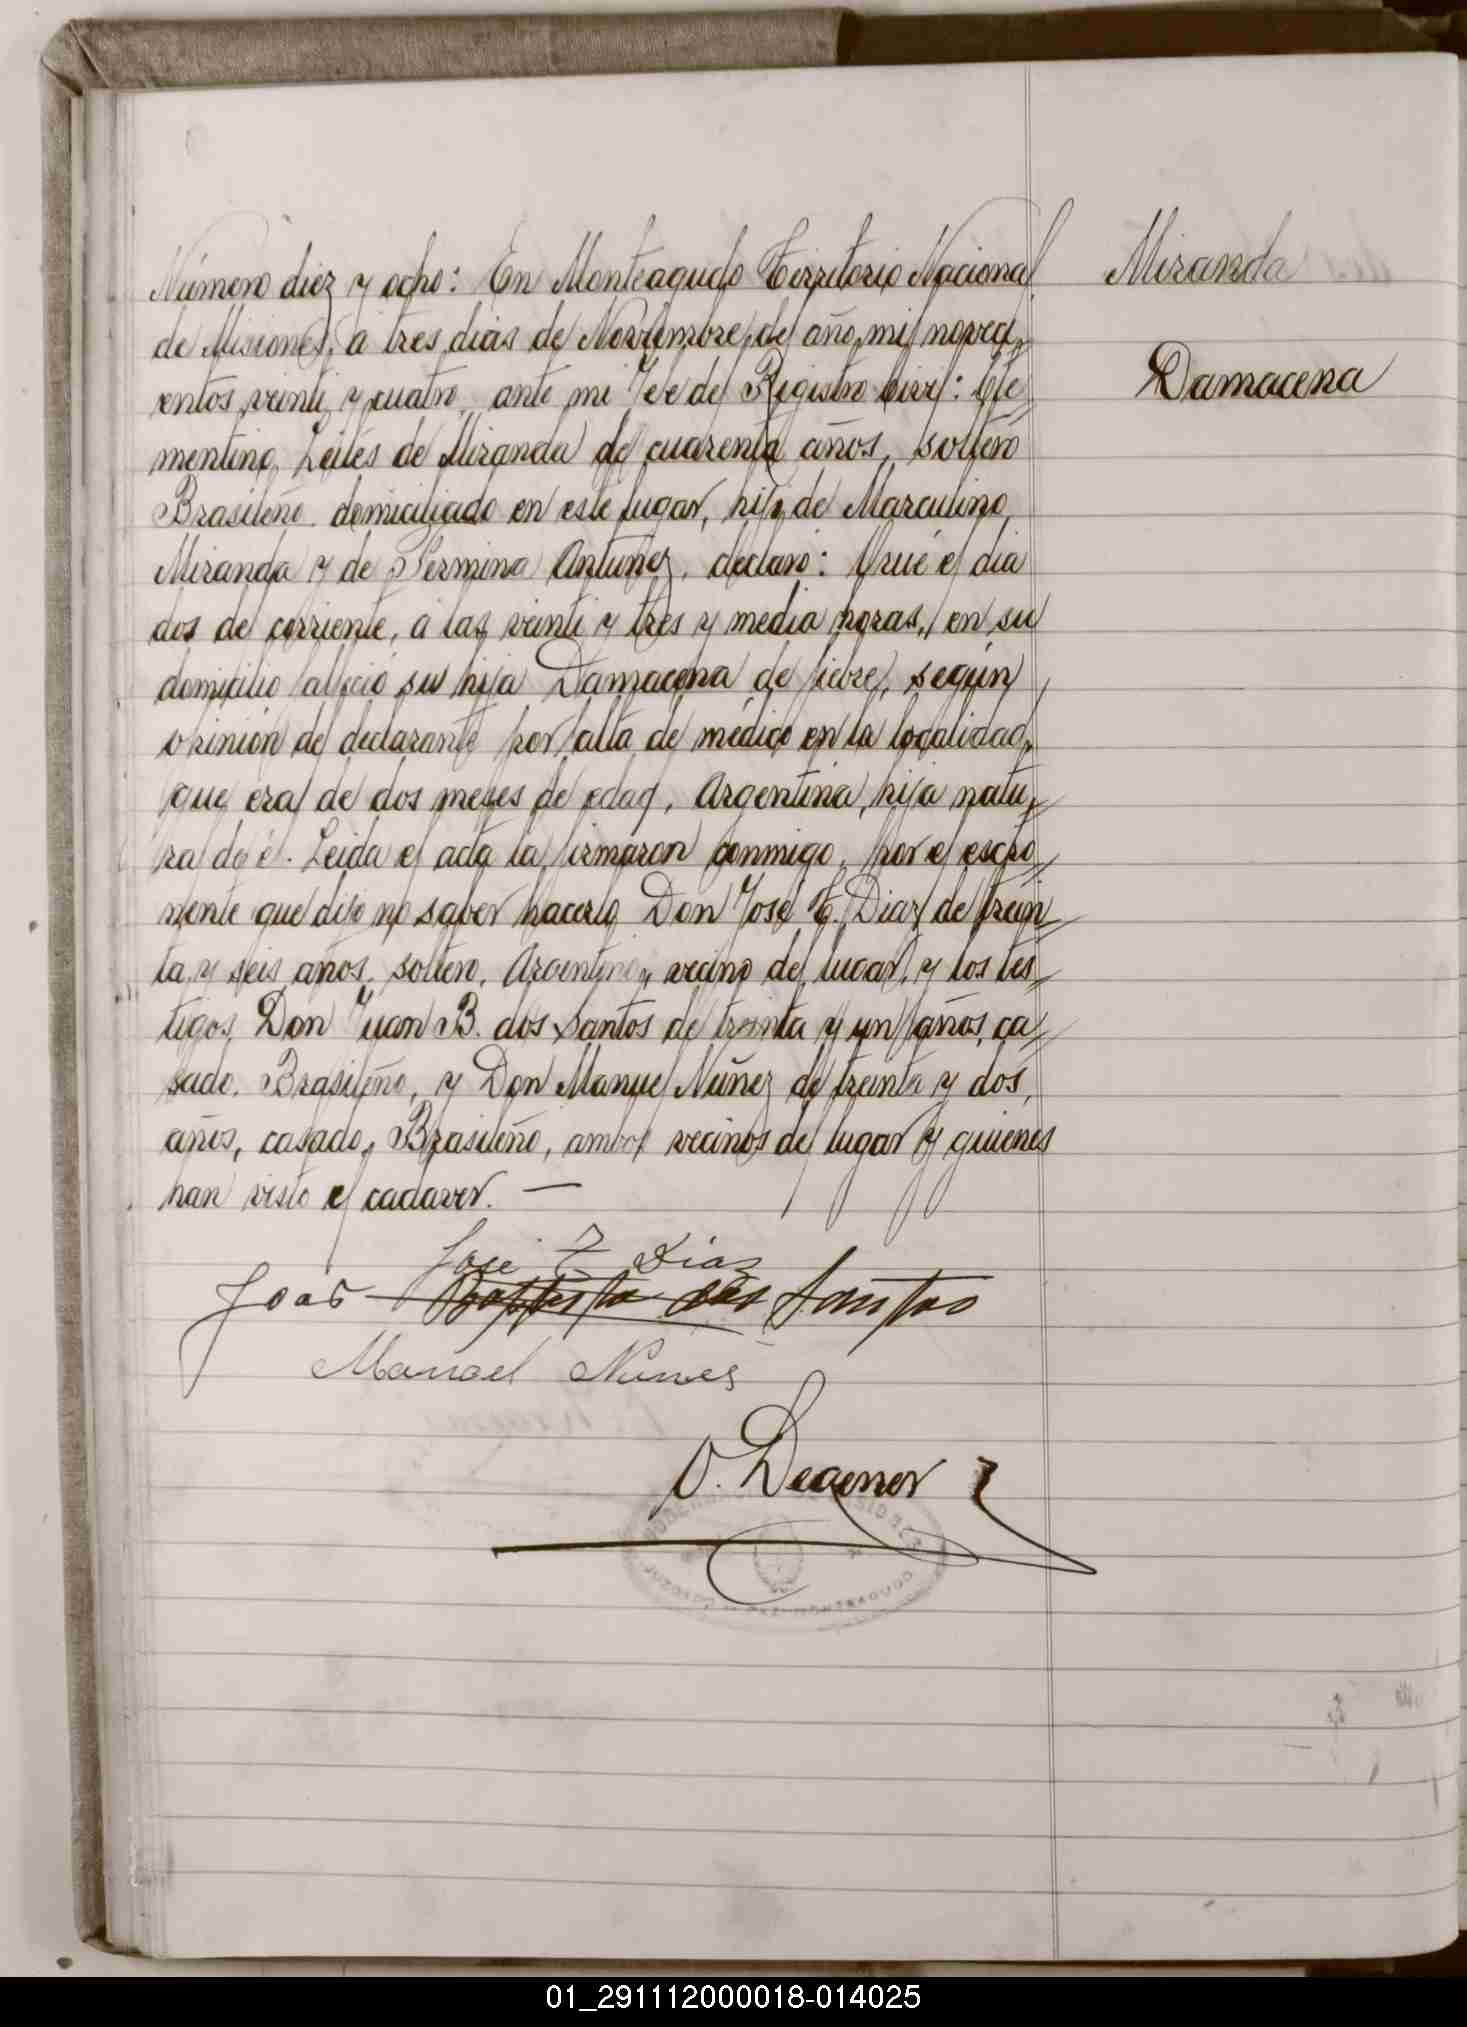 Número diez y ocho: En Monteagudo Territorio Nacional
Miranda
de Misiones, a tres dias de Noviembre del año mil novecí
Damacena
entos veinti y cuatro, ante mi Jefe del Registro Civil: Cle
mentino Leites de Miranda de cuarenta años, soltero
Brasileño domiciliado en este lugar, hijo de Marculino
Miranda y de Fermina Antuñez, declaró: Qué el dia
dos del corriente, a las veinti y tres y media horas, en su
domicilio falleció su hija Damacena de fiebre, según
opinión del declarante por falta de médico en la localidad,
que era de dos meses de edad, Argentina, hija natu
ral de él. Leida el acta la firmaron conmigo, por el espo
nente que dijo no saber hacerlo Don José F. Diaz de trein
ta y seis años, soltero, Argentino, vecino del lugar, y los tes
tigos, Don Juan B. dos Santos de treinta y un años, ca
sado, Brasileño, y Don Manuel Núñez de treinta y dos
años, casado, Brasileño, ambos vecinos del lugar y quienes
han visto el cadaver. —
José F Diaz
Joao Baptista dos Santos
Manoel Nunes
O. Degener
01_291112000018-014025